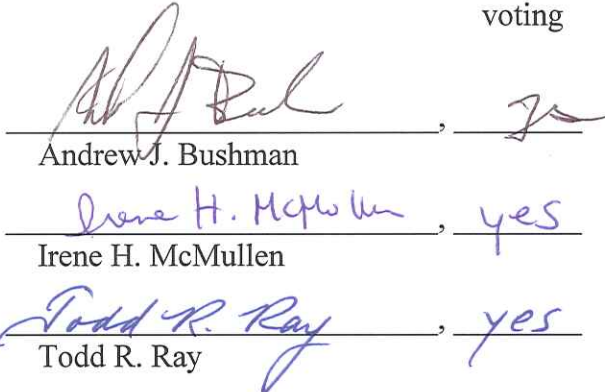 voting
,
Andrew J. Bushman
Irene H. McMullen, yes
Irene H. McMullen
Todd R. Ray, yes
Todd R. Ray